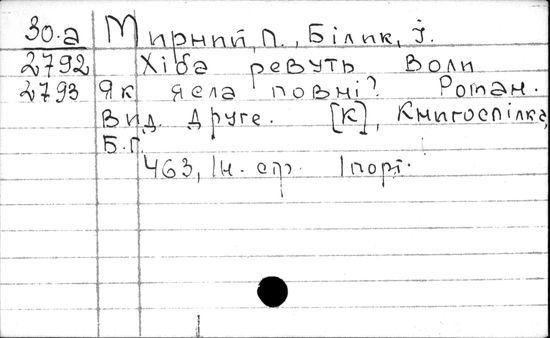 30.а Мирний, П., Білик, І.
2792 Хіба ревуть воли
2793 Як ясла повні? Роман.
Вид. друге. [К], Книгоспілка,
Б.Г.
463, Ін. стр. 1 порт.